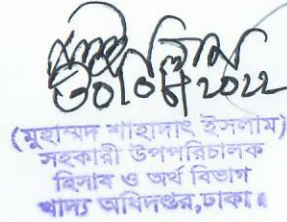 ৩০/০৫/২০২২
(মুহাম্মদ শাহাদাৎ ইসলাম)
সহকারী উপপরিচালক
হিসাব ও অর্থ বিভাগ
খাদ্য অধিদপ্তর,ঢাকা।